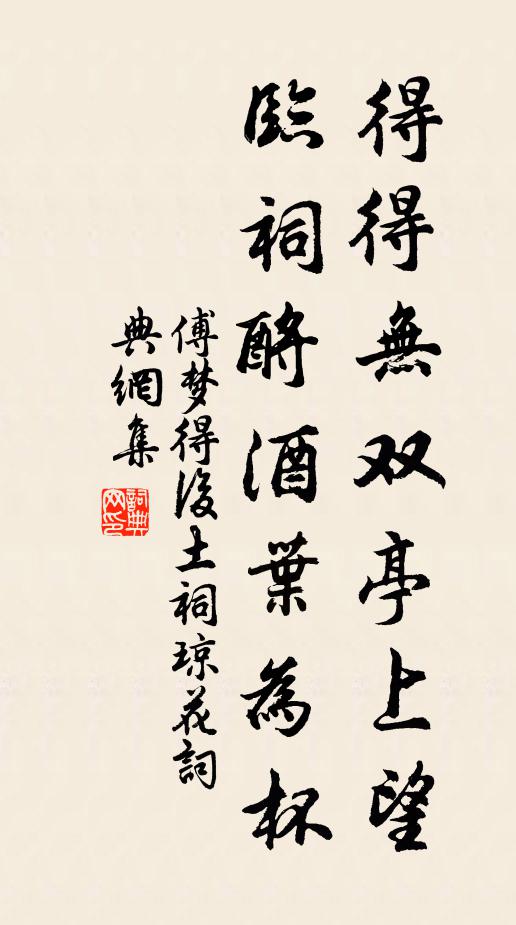 得得無双亭上望
臨祠酹酒葉為杯
傅梦得後土祠琼花詞
典網集
詞典网印